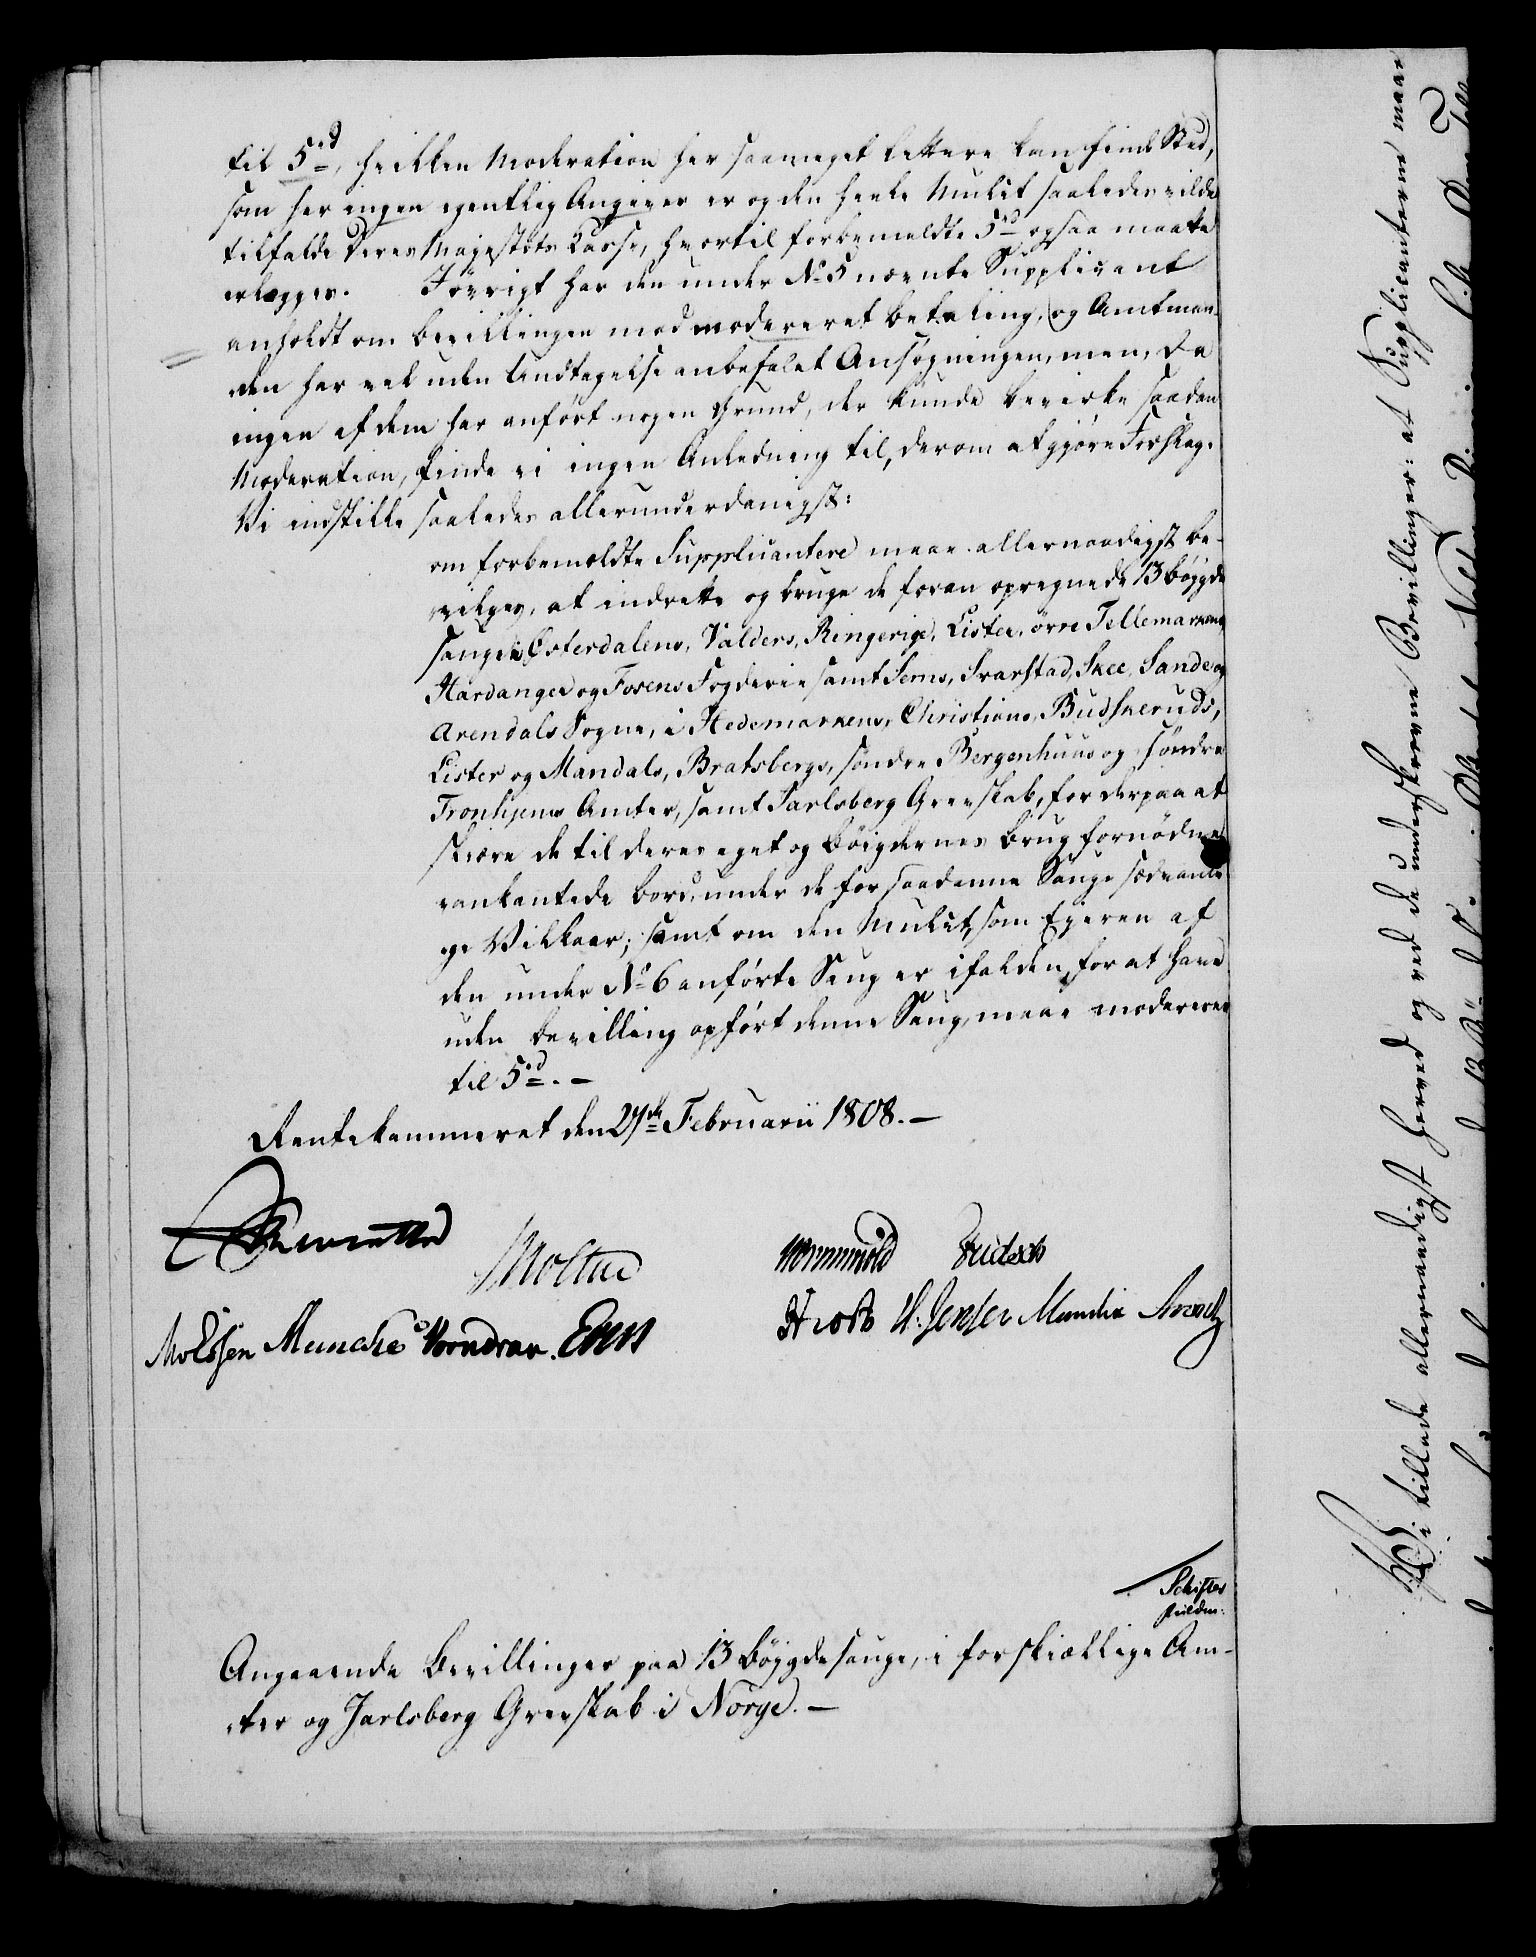 til 5rd, hvilken Moderation her saameget lettere kan finde Sted,
som her ingen egentlig Angiver er og den heele Mulct saaledes vilde
tilfalde Deres Majestæts Casse, hvortil forbemeldte 5rd ogsaa maatte
erlægges. Iøvrigt har den under No 5 nævnte Supplicant
anholdt om Bevillingen mod modereret Betaling, og Amtman-
den har vel uden Undtagelse anbefalet Ansøgningen, men, da
ingen af dem har anført nogen Grund, der kunde bevirke saadan
Moderation, finde vi ingen Anledning til, derom at gjøre Forslag.
Vi indstille saaledes allerunderdanigst:
om forbemeldte Supplicantere maae allernaadigst be-
vilges, at indrette og bruge de foran opregnede 13 Bøygde
sauge i Østerdalens, Valders, Ringerige, Lister, övre Tellemarkens,
Hardanger og Fosens Fogderie samt Sems, Svarstad, Skee, Sande og
Arendals Sogne, i Hedemarkens, Christians, Budskeruds,
Lister og Mandals, Bratsbergs, söndre Bergenhuus og söndre
Tronhjems Amter, samt Jarlsberg Grevskab, for derpaa at
skiære de til deres eget og Bøigdernes Brug fornødne
vankantede Bord, under de for saadanne Sauge sædvanli-
ge Vilkaar; samt om den Mulct, som Eieren af
den under No 6 anførte Saug er ifalden, for at have
uden Bevilling opført denne Saug, maae modereres
til 5rd. -
Rentekammeret den 27de Februarii 1808. -
Reventlow
Moltke
Wormskiold
Knudsen Muncke Vorndran. Eves
H. Jensen Mundie
Schifter
Angaaende Bevillinger paa 13 Bøjgdesauge, i forskiællige Am-
ter og Jarlsberg Grevskab i Norge. -
Vi tillade allernaadigst herved og ved de underskrevne Bevillinger: at Supplicanterne maae